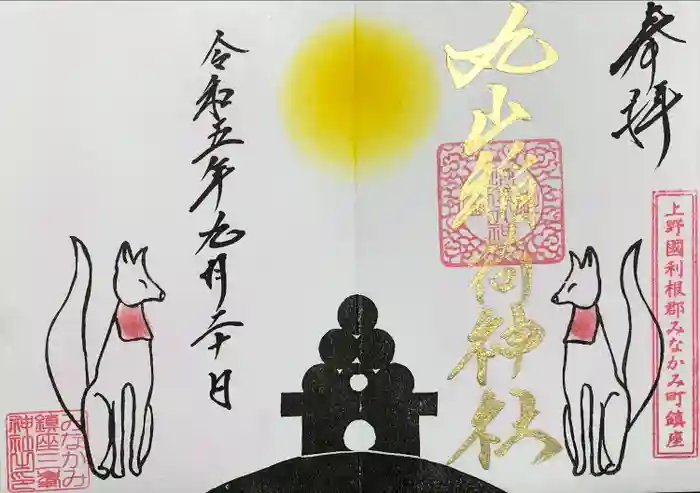 奉拝
上野國利根郡みなかみ町鎮座
丸山稲荷神社
令和五年九月二十日
みなかみ
鎮座三
神社之印